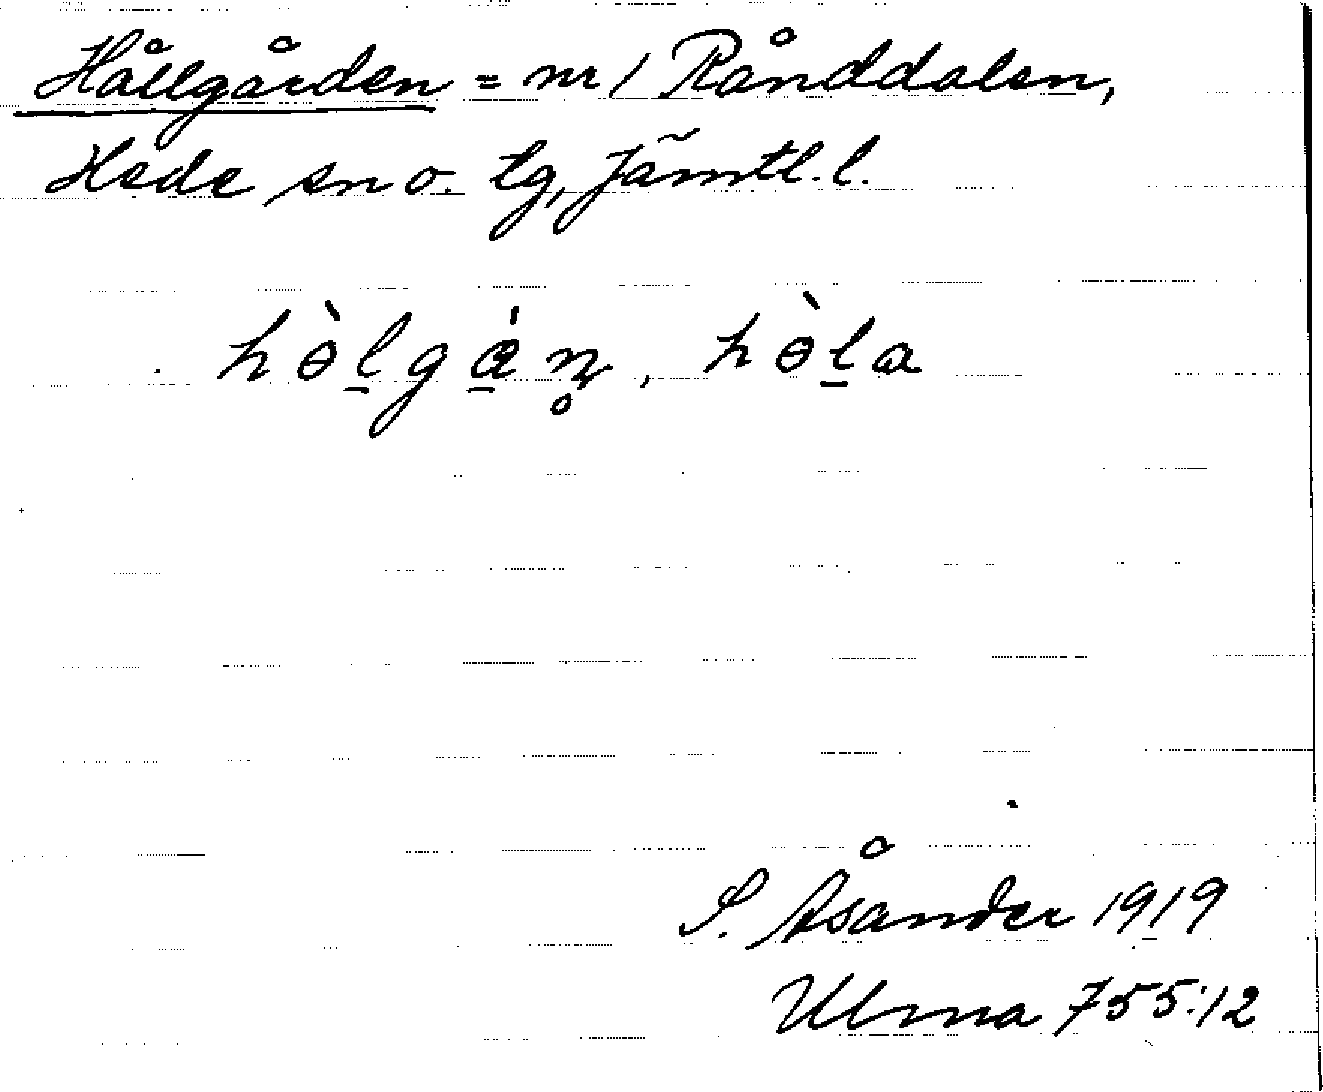 Hållgården = nr 1 Rånddalen,
Hede sn o. tg, Jämtl. l.
hɵ̀l̠gæ̠̍n̥, hɵ̀l̠a
S. Åsander 1919
Ulma 755:12